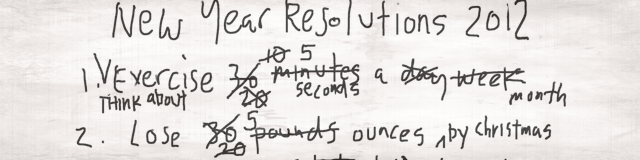 New Year Resolutions 2012
1. Think about Exercise 30 20 10 5 minutes seconds a day week month
2. Lose 30 20 5 pounds ounces by christmas